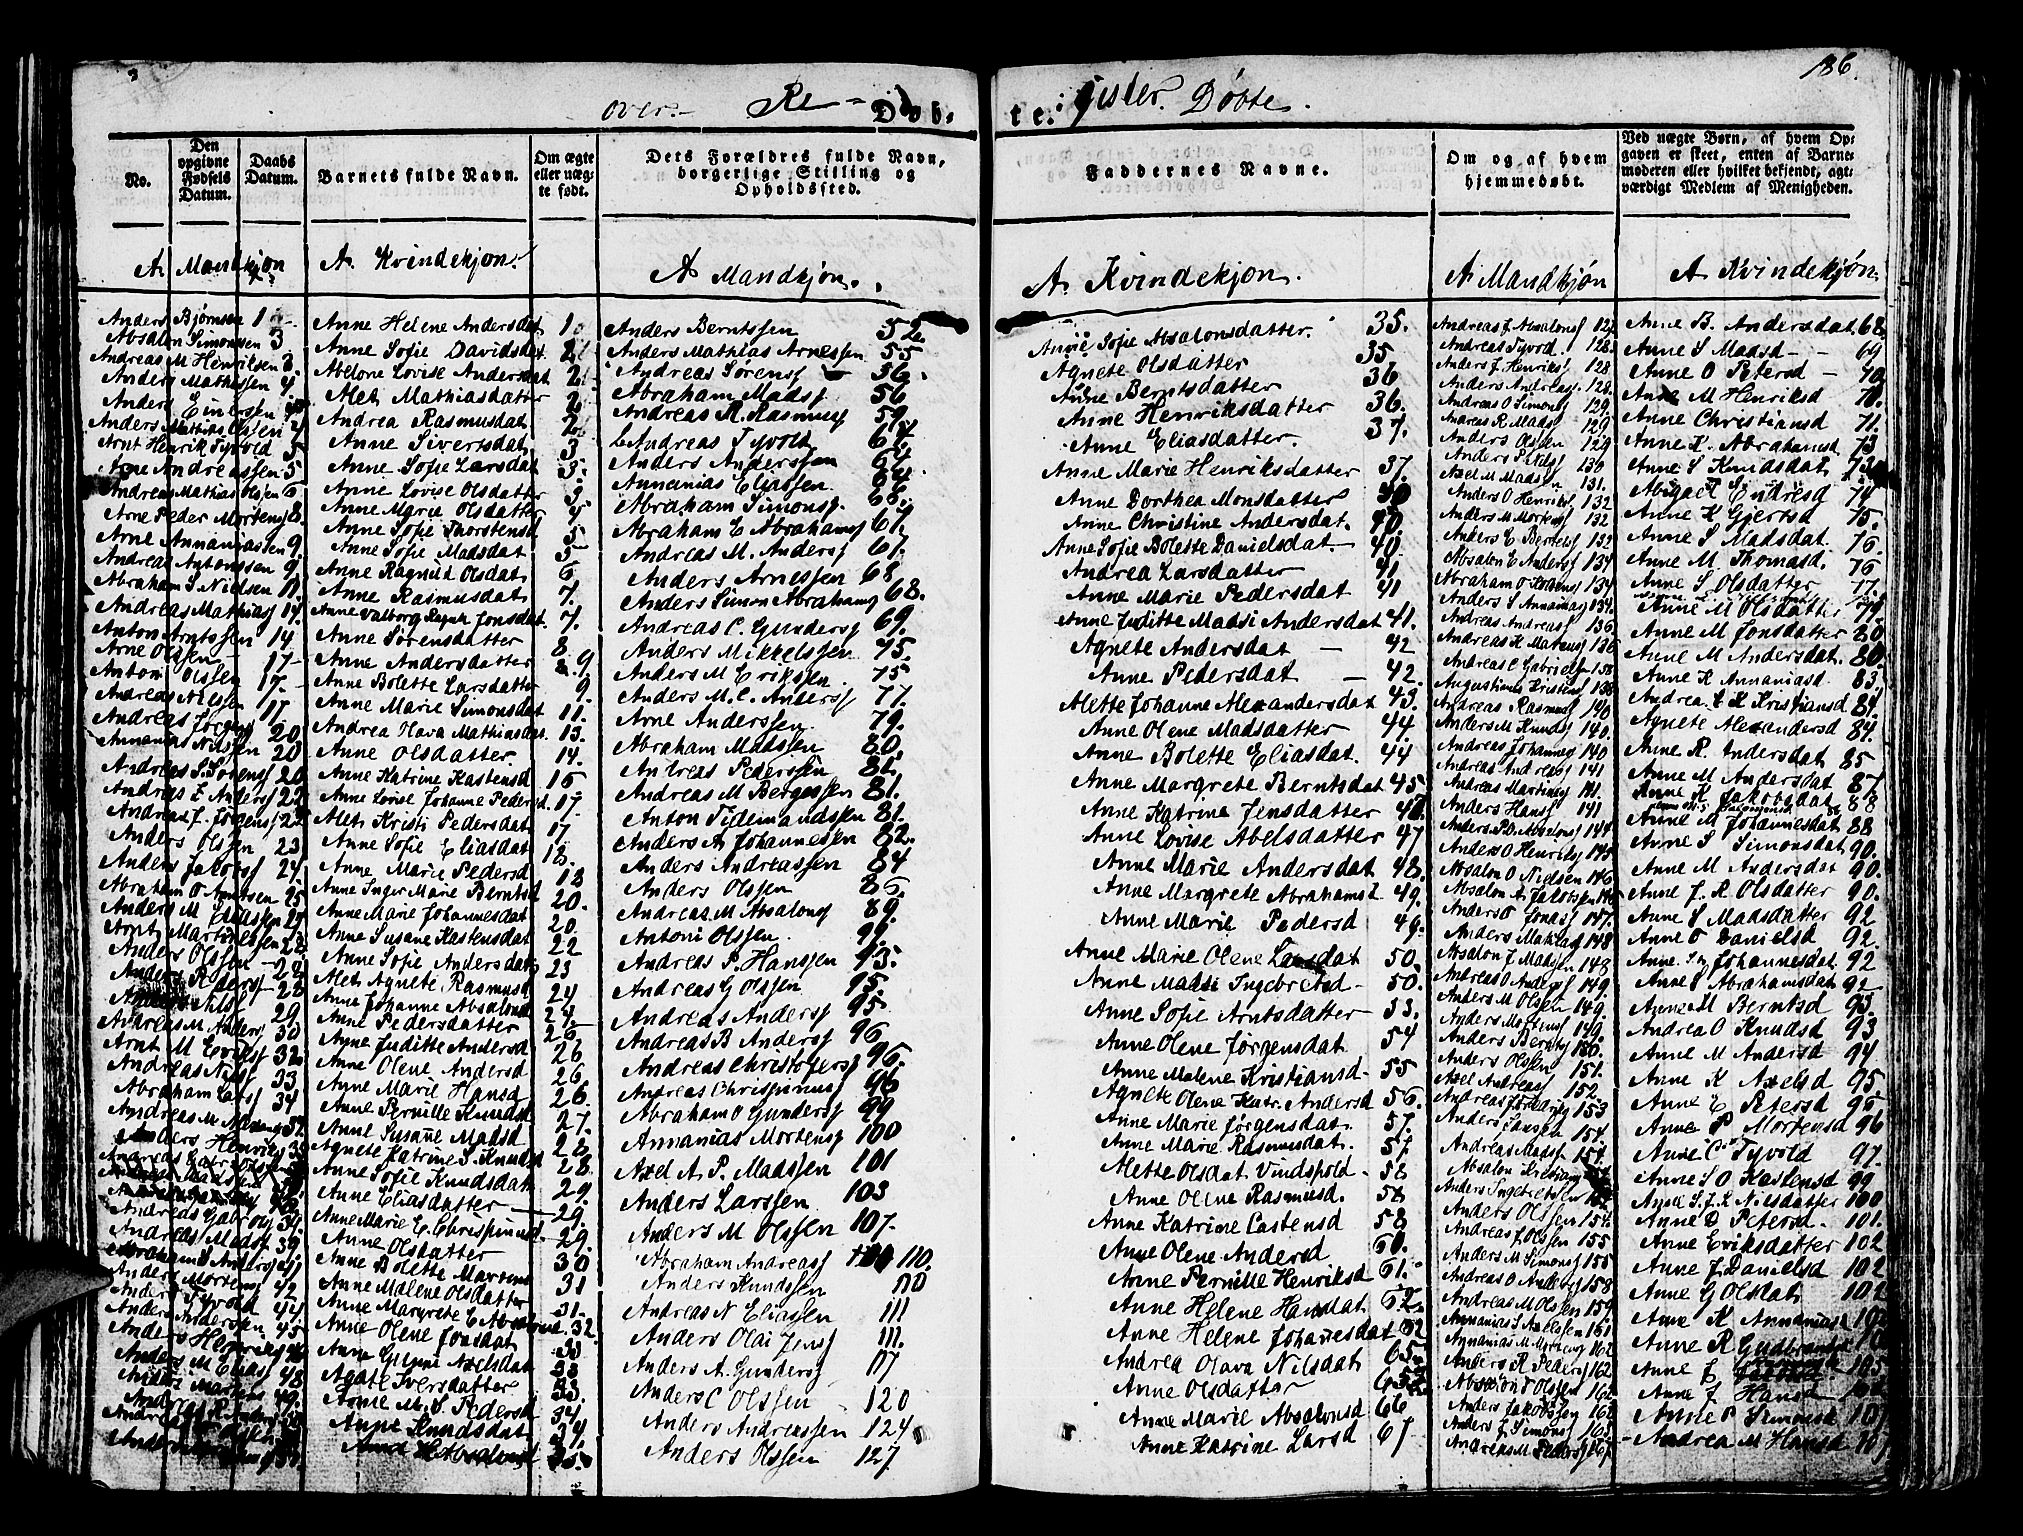 186.
over Re- Døb-
te. gister Døbte.
No.
Den opgivne Fødsels Datum.
Daabs Datum.
Barnets fulde Navn.
Om ægte eller uægte født.
Dets Forældres fulde Navn, borgerlige Stilling og Opholdssted.
Faddernes Navne.
Om og af hvem hjemmedøbt.
Ved uægte Børn, af hvem Opgaven er skeet, enten af Barnemoderen eller hvilket bekjendt, agtværdigt Medlem af Menigheden.
A. Mandkjøn
Anders Bjørnsen 1
Absalon Simonssen 3
Andreas M Henriksen 3.
Anders Mathissen 4
Anders Einersen
Anders Mathias Olsen 4
Arnt Henrik Tyvold 5
Arne Andreassen 5
Andreas Mathias Olssen 6
Arne Peder Mortensf 8
Arne Annaniassen 9.
Andreas Antonssen 9
Abraham S Nielsen 11.
Andreas Mathiasf 14.
Anton Arntssen 14
Arne Olssen 17-
Anton Olssen 17.-
Andreas Nilssen 17.
Andreas Jørgensf 20
Annanias Nilssen 20
Andreas S. Sørensf 20
Andreas E Andersf 22
Andreas J. Jørgensf 22
Anders Olssen 23
Anders Jakobsf 24.
Abraham O Arntssen 25
Anders M Eliassen 27
Arnt Martinessen 28
Anders Olssen 28
Anders Pedersf 28
29
Andreas M. Andersf 30
Arnt M Eriksf 32
Andreas Nilsf 33
Abraham Larsf 34
Anders Henriksf
Andreas Gabrielsf 34
Andreas Madsf 39
Abraham S Andersf 41
Anders Mortensf 42
Anders Tyvold 44
Anders Andersen 45
Anders Henriksf 46
Anders M Eliasf 48
Anders Martens 49.
A. Kvindekjøn.
Anne Helene Andersdat 1
Anne Sofie Davidsdat. 2
Abelone Lovise Andersdat 2
Alet Mathiasdatter 2
Andrea Rasmusdat 2
Anne Sivertsdat 3
Anne Sofie Larsdat 3.
Anne Lovise Olsdatter 3.
Anne Marie Olsdatter 4
Anne Sofie Thorstensd 5
Anne Sofie Madsdat 5
Anne Ragnild Olsdat 6
Anne Rasmusdat 7.
Anne Valborg Ragna Jonsdat. 7.
Anne Sørensdatter 8.
Anne Andersdatter 9
Anne Bolette Larsdatter 9
Anne Marie Simonsdat 11.
Andrea Hava Mathiasdat 13.
Anne Olsdatter 14.
Anne Katrine Kastensd 16
Anne Lovise Johanne Pedersd. 17.
Alet Kristi Pedersdat 17
Anne Sofie Eliasdat 18.
Anne Marie Pedersd 18
Anne Inger Marie Berntsd 20.
Anne Marie Johannesdat 20
Anne Susane Kastensdat 22
Anne Sofie Andersdat 23
Alet Agnete Rasmusd 24
Anne Johanne Absalonsd 24.
Anne Pedersdatter 26
Anne Juditte Andersd 26
Anne Olene Andersd 26.
Anne Marie Hansd 26.
Anne Pernille Knudsd 27.
Anne Susane Madsd 28
Agnete Katrine S. Knudsd 28.
Anne Sofie Knudsdat 29.
Anne Eliasdatter 29.
Anne Marie E. Chrespinusd 29.
Anne Olsdatter 30
Anne Bolette Martens 31
Anne Malene Olsdatter 31.
Anne Margrete E Absalons 32.
Anne Olene Jonsdat 33
Anne Gunni Axelsdat 33
Agate Iversdatter 33.
Anne M. S. Pedersd 34.
Anne Knudsdat 34.
A Mandkjøn.
Anders Berntssen 52.
Anders Mathias Arnessen 55
Andreas Sørensf 56.
Abraham Madsf 56
Andreas R. Rasmusf 59.
Andreas Tyvolt 64
Anders Anderssen 64
Annanias Eliassen 64.
Abraham Simonsf. 66.
Abraham E Abrahamsf 67.
Andreas M. Andersf 67.
Anders Arnessen 68
Anders Simon Abrahamsf 68.
Andreas C. Gundersf 69.
Anders Mikkelssen 75.
Anders M Erikssen 75
Anders M. C. Andersf 77.
Arne Anderssen 79.
Abraham Madssen 80.
Andreas Pederssen 82.
Andreas M Bergessen 81.
Anton Tidemandssen 81.
Anders A Johannesen 82.
Anders Andreassen 84
Anders Olssen 86.
Andreas M Absalonsf 89.
Antoni Olssen
Andreas P. Hanssen 93.
Andreas G Olssen 95
Andreas Andersf 95
Andreas B Andersf 96
Andreas Christofersf 96.
Andreas Chrispinusf 96
Abraham O Gundersf 99
Annanias Mortensf 100
Axel A. P. Madssen 101
Anders Larssen 103
Anders M Olssen 107.
Abraham Andreasf 110.
Anders Knudssen 110
Andreas N Eliassen 111
Anders Olai Jensf 111.
Anders A. Gundersf 117
Anders C Olssen 120
Anders Andreassen 124
Anders Olssen 127.
A. Kvindekjøn.
Anne Sofie Absalonsdatter. 35.
Agnete Olsdatter 35
Anne Berntsdatter 36
Anne Henriksdatter 36.
Anne Eliasdatter. 37.
Anne Marie Henriksdatter 37.
Anne Dorthea Monsdatter 39
Anne Christine Andersdat. 40.
Anne Sofie Bolette Danielsdat 40.
Andrea Larsdatter 41
Anne Marie Pedersdat 41
Anne Juditte Madsi Andersdat 41.
Agnete Andersdat 42
Anne Pedersdat 42.
Alette Johanne Alexandersdat 43.
Anne Olene Madsdatter 44.
Anne Bolette Eliasdat 44
Anne Margrete Berntsdat 45
Anne Katrine Jensdatter 46.
Anne Lovise Abelsdatter 47
Anne Marie Andersdat 48.
Anne Margrete Abrahamsd 49.
Anne Marie Pedersd 49.
Anne Marie Olene Larsdat 50.
Anne Madsi Ingebretsd 50.
Anne Sofie Arntsdatter 53.
Anne Olene Jørgensdat 54
Anne Malene Kristiansd 55
Agnete Olene Katr. Andersd 56.
Anne Marie Jørgensdat 57.
Anne Marie Rasmusdat 57
Alette Olsdat Vindspold 58
Anne Olene Rasmusd. 58
Anne Katrine Castensd 58
Anne Olene Andersd 60.
Anne Pernille Henriksd 61.
Anne Helene Hansdat 62.
Anne Helene Johanesdat 62
Andrea Olava Nilsdat 65.
Anne Olsdatter 65
Anne Marie Absalonsd 66
Anne Katrine Larsd 67
A. Mandkjøn
Andreas J Absalonsf 127
Andreas Tyvold. 128.
Anders J. Henriksf 128
Anders Andreasf. 128.
Andreas O Simonsf 129.
Andreas R Madsf 129
Anders Olssen 129
Anders P Nilsf 130
Axel M Madsen 131.
Anders O Henriksf 132
Anders M Mortensf 132
Anders E Bertelsf 132
Absalon E Andersf 134
Anders S Annaniasf 134.
Andreas Andreasf 136
Andreas K Martensf 136
Andreas C Gabrielsen 138
Augustinus Kristensf 138
Andreas Rasmusf 140
Anders M Knudsf 140.
Andreas Johannesf 140
Andreas Andreasf 141
Andreas Martinesf 141.
Anders Hansf 141
Anders P. O. Absalonsf 144
Anders O Henriksf 145
Absalon O Nielsen 146
Absalon A Jakobsen 146
Anders O Jonasf 147.
Anders Mathiasf 148
Absalon J Madssen 148
Andreas O Andersf 149.
Anders M Olssen 149.
Anders Mortensf 149.
Anders Berntsf 150.
Anders Olssen 151.
Axel Andreasf 152.
Andreas Jørgensf 153
Anders Larsen 154.
Andreas Madsf 154
Absalon Kristiansf
Anders Ingebretsen
Anders Olssen 154.
Andreas J Olssen 155
Anders M Simonsf 155
Andreas O Andersf 158
Andreas M Olssen 159
Annanias S Axelssen 161
Annanias M Mortensf 162
Anders R Pedersf 162
Absalon T Olssen 162
Anders Jakobssen 163
Anders J. Simonsf 165
Andreas M. Pedersf 167
A Kvindekjøn.
Anne B. Andersdat 68.
Anne S Madsd 69
Anne O Petersd 70
Anne M Henriksd 70.
Anne Christiansd 71.
Anne K. Abrahamsd 73
Anne S Knudsdat 73
Abigael Endresd 74
Anne K Gjertsd 75.
Anne S Madsdat 76.
Anne M Thomasd. 76
Anne S Olsdatter 77.
Anne M Olsdatter 79.
Anne M Jonsdatter 80
Anne M Andersdat. 80.
Anne K Annaniasd 83.
Andrea E K Kristiansd 84.
Agnete Alexandersd 84.
Anne R. Andersdat 85
Anne M Andersdat 87.
Anne K Jakobsdat 88
Anne M Johannesdat 88
Anne S Simonsdat 90.
Anne M Andersdat 90.
Anne J. R. Olsdatter 90.
Anne S Madsdatter 92
Anne T Danielsd 92.
Anne In Johannesdat 92
Anne S Abrahamsdat 92
Anne M Berntsd 93.
Andrea O Knudsd 93
Anne M Andersd 94
Anne K Axelsd 95
Anne E Petersd 95
Anne P Mortensd 96
Anne C Tyvold 97.
Anne S O Kastensd 99
Anne S. J. L Nilsdatter 100
Anne D Petersd. 101.
Anne Eriksdatter 102
Anne J. Danielsd 102
Anne G Olsdat 102
Anne K Annaniasd 102
Anne R Gudbransd
Anne J 105
Anne J Hansd
Anne P Simonsd 107
Andrea M Hansd 107